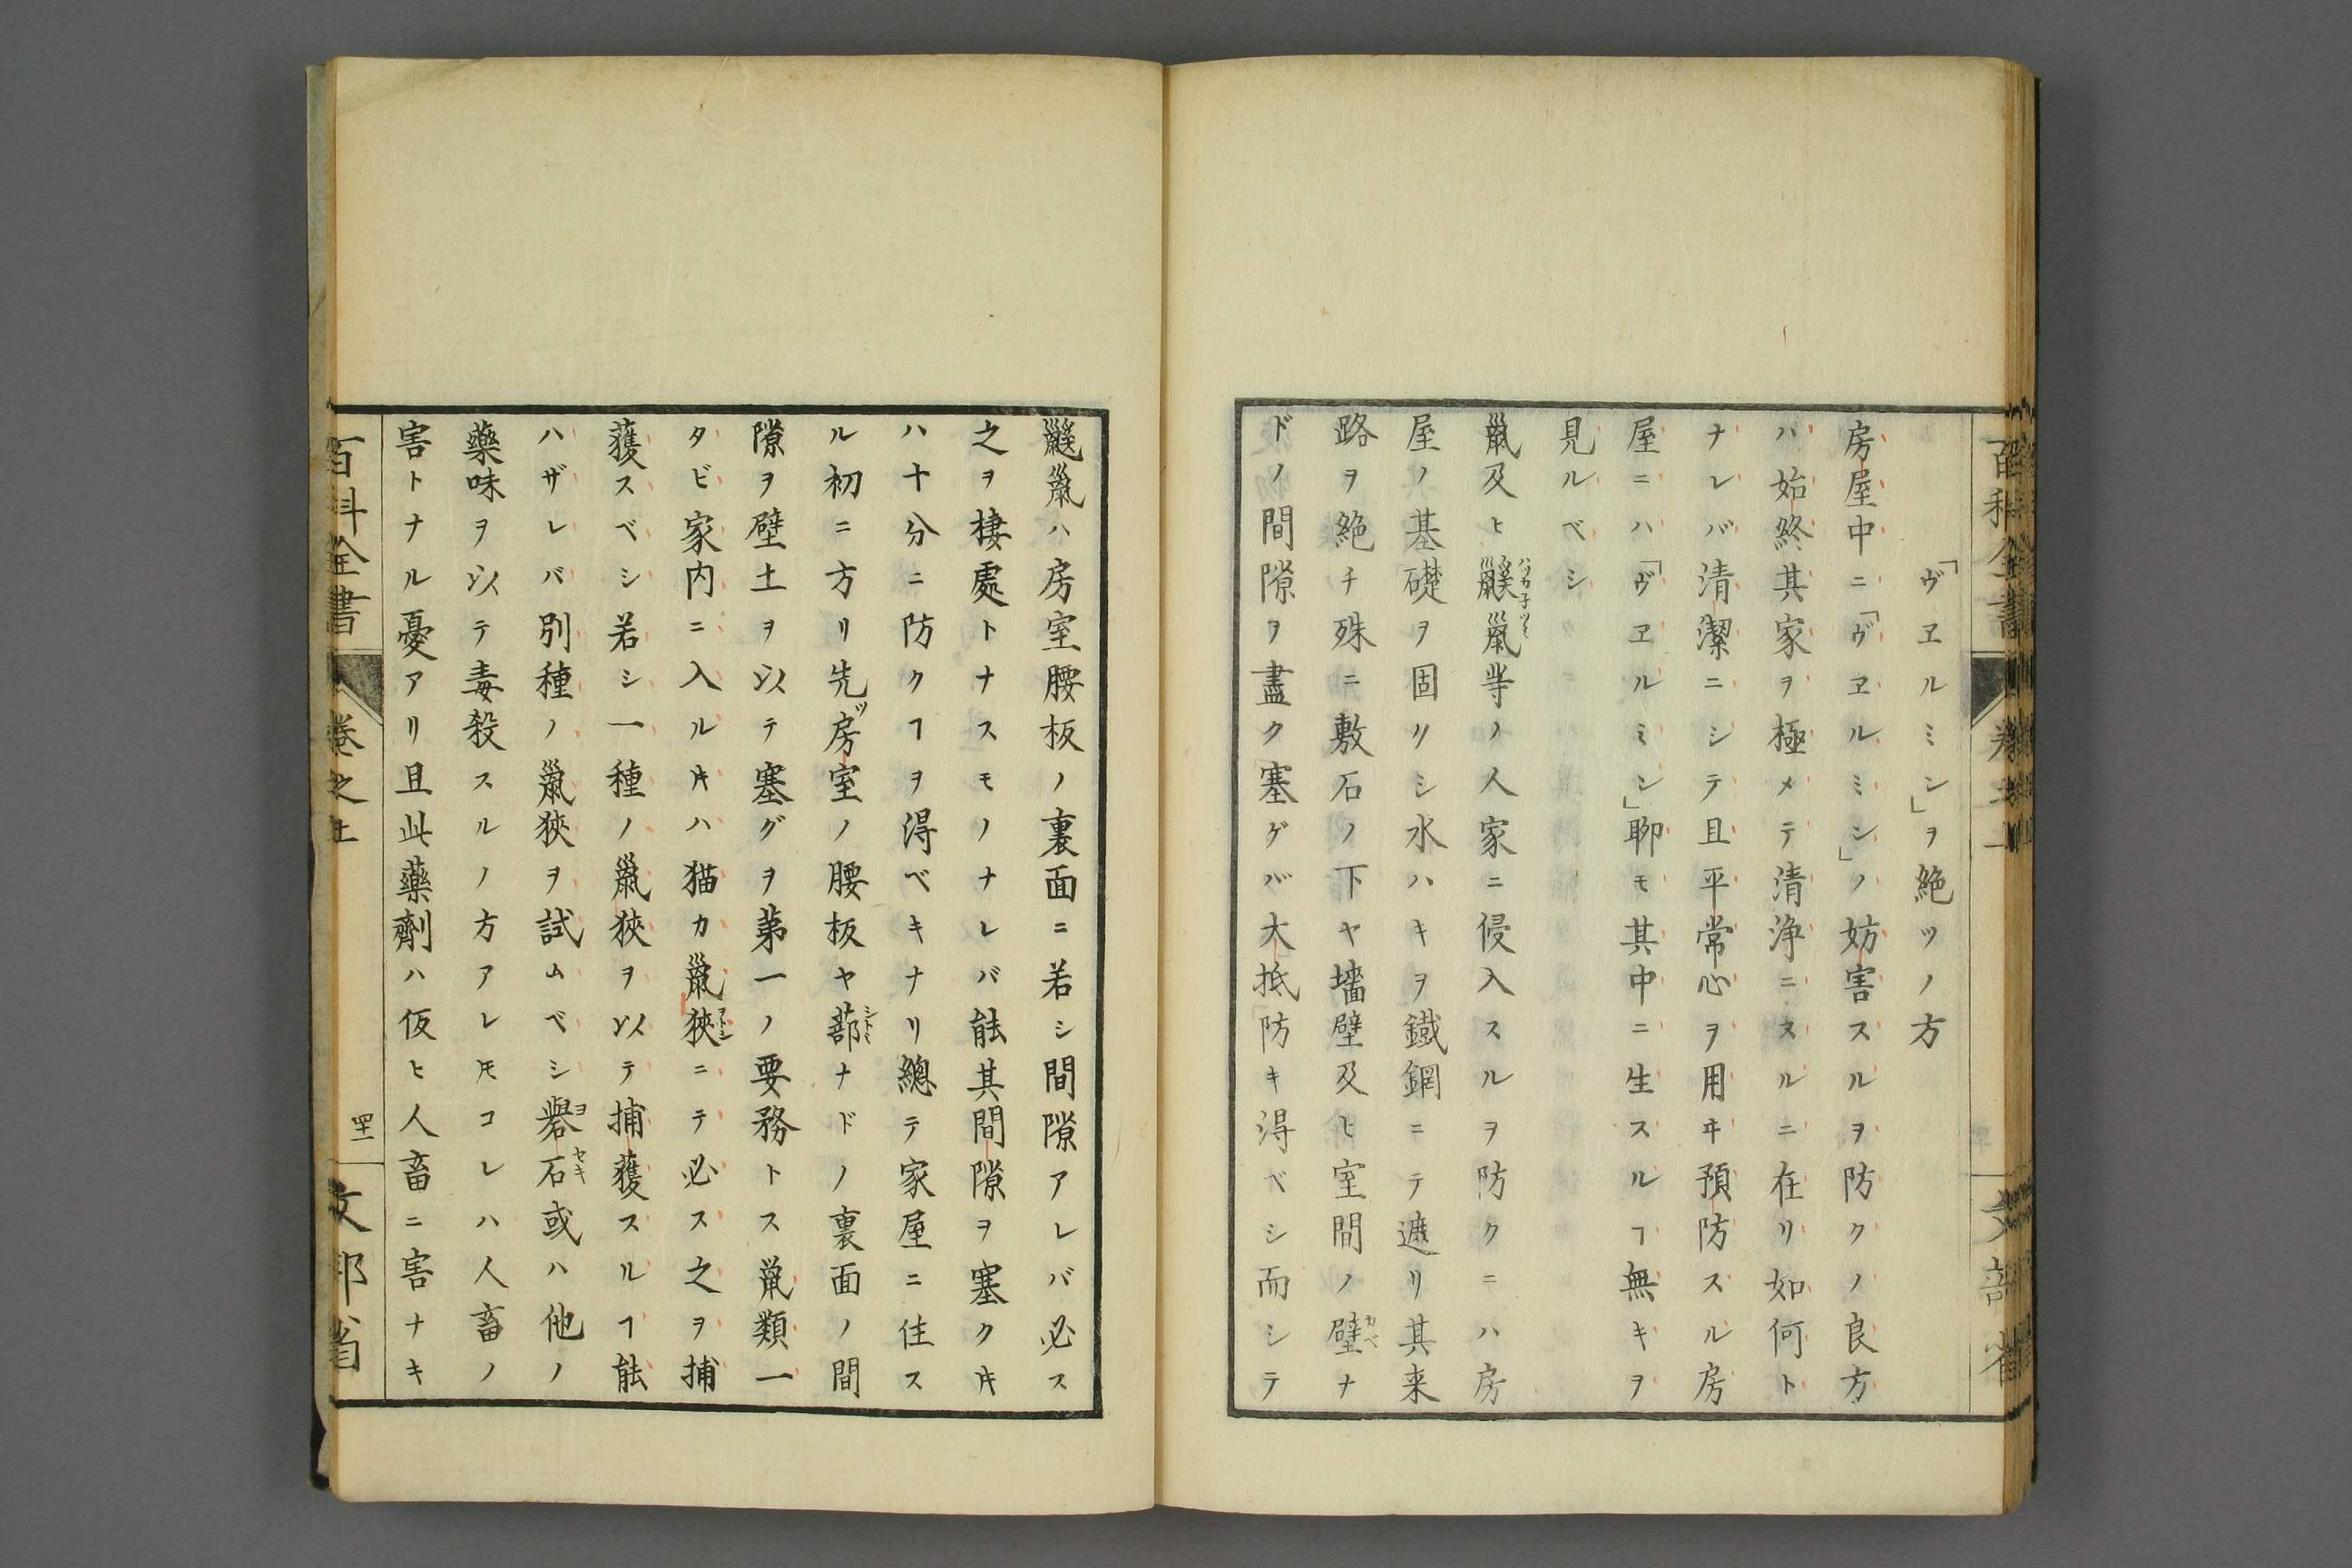 「ヴヱルミン」ヲ絶ツノ方
房屋中ニ「ヴヱルミン」ノ妨害スルヲ防クノ良方
ハ始終其家ヲ極メテ清浄ニスルニ在リ如何ト
ナレバ清潔ニシテ且平常心ヲ用ヰ預防スル房
屋ニハ「ヴヱルミン」聊モ其中ニ生スルヿ無キヲ
見ルベシ
鼠及ヒ鼷鼠等ノ人家ニ侵入スルヲ防クニハ房
ハツカ子ツミ
屋ノ基礎ヲ固クシ水ハキヲ鐵網ニテ遮リ其来
路ヲ絶チ殊ニ敷石ノ下ヤ墻壁及ヒ室間ノ壁ナ
カベ
ドノ間隙ヲ盡ク塞ゲバ大抵防キ得ベシ而シテ
鼷鼠ハ房室腰板ノ裏面ニ若シ間隙アレバ必ス
之ヲ棲處トナスモノナレバ能其間隙ヲ塞クキ
ハ十分ニ防クヿヲ得ベキナリ總テ家屋ニ住ス
ル初ニ方リ先ツ房室ノ腰板ヤ蔀ナドノ裏面ノ間
シトミ
隙ヲ壁土ヲ以テ塞グヲ苐一ノ要務トス鼠類一
タビ家内ニ入ルキハ猫カ鼠狹ニテ必ス之ヲ捕
ヲトシ
獲スベシ若シ一種ノ鼠狹ヲ以テ捕獲スルヿ能
ハザレバ別種ノ鼠狹ヲ試ムベシ礜石或ハ他ノ
ヨセキ
藥味ヲ以テ毒殺スルノ方アレ𪜈コレハ人畜ノ
害トナル憂アリ且此藥劑ハ仮ヒ人畜ニ害ナキ
百科全書 巻之上 四十一 文部省